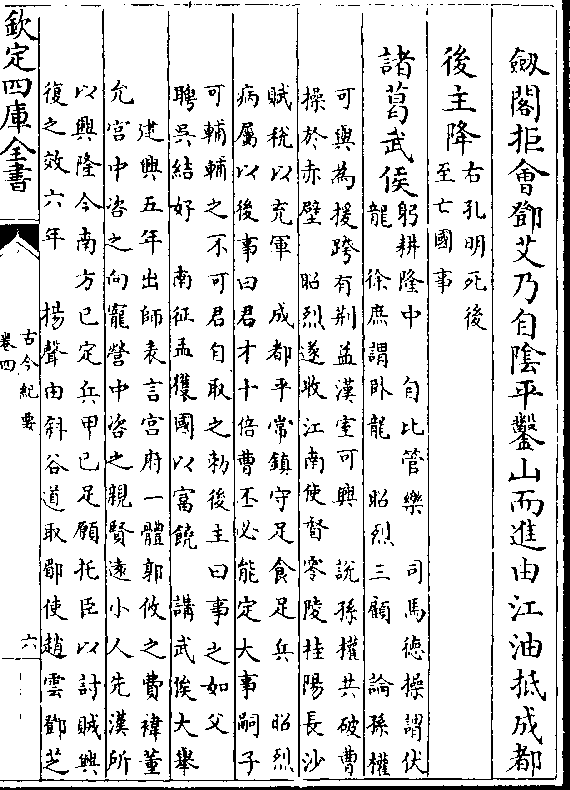 劔閣拒會鄧艾乃自陰平鑿山而進由江油抵成都
後主降
右孔明死後
至亡國事
諸葛武侯
躬耕隆中 自比管樂 司馬德操謂伏
龍 徐庶謂卧龍 昭烈三顧 論孫權
可與為援跨有荆益漢室可興 說孫權共破曹
操於赤壁 昭烈遂收江南使督零陵桂陽長沙
賦稅以充軍 成都平常鎮守足食足兵 昭烈
病屬以後事曰君才十倍曹丕必能定大事嗣子
可輔輔之不可君自取之勑後主曰事之如父
聘吳結好 南征孟獲國以富饒 講武俟大舉
建興五年出師表言宮府一體郭攸之費禕董
允宮中咨之向寵營中咨之親賢遠小人先漢所
以興隆今南方已定兵甲已足願托臣以討賊興
復之效六年 揚聲由斜谷道取郿使趙雲鄧芝
欽定四庫全書
古今紀要
卷四
六